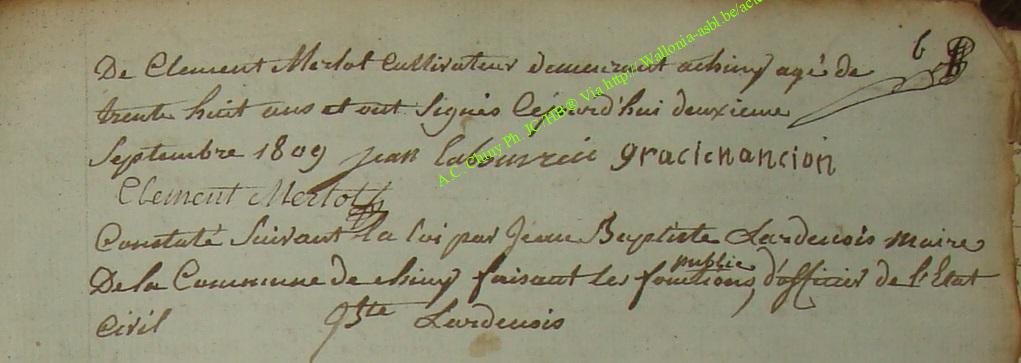 6
De Clement Merlot Cultivateur demeurant a chiny agé de
trente huit ans et ont signés cejourd'hui deuxieme
Septembre 1809 jean gracienancion
Clement Merlot
Constaté Suivant la loi par Jean Baptiste Lardenois maire
De la Commune de chiny faisant les fonctions public d'officier de l'Etat
Civil Lardenois
A.C. Chiny Ph. JC "HB® Via http://Wallonia-asbl.be/acte